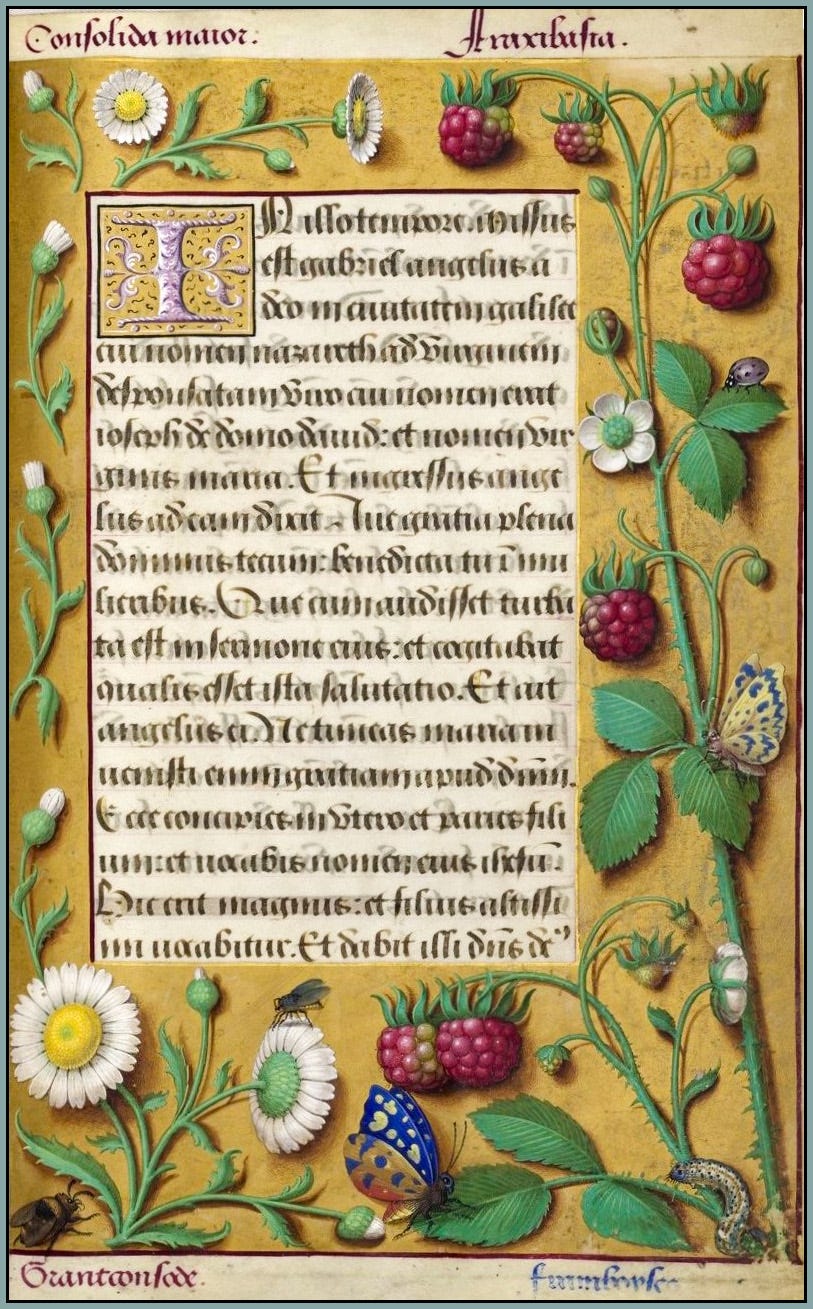 Consolida maior.
Araxibasta.
IN illo tempore. Missus
est gabriel angelus a
deo in ciuitatem galilee
cui nomen nazareth ad virginem
desponsatam viro cui nomen erat
ioseph de domo dauid: et nomen vir
ginis maria. Et ingressus ange
lus ad eam dixit. Aue gratia plena
dominus tecum: benedicta tu ī mu
lieribus. Que cum audisset turba
ta est in sermone eius: et cogitabat
qualis esset ista salutatio. Et ait
angelus ei. Ne timeas maria in
uenisti enim gratiam apud dn̄m.
Ecce concipies in vtero et paries fili
um: et uocabis nomen eius ihesū.
Hic erit magnus: et filius altissi
mi uocabitur. Et dabit illi dn̄s de᾿
Grant consode.